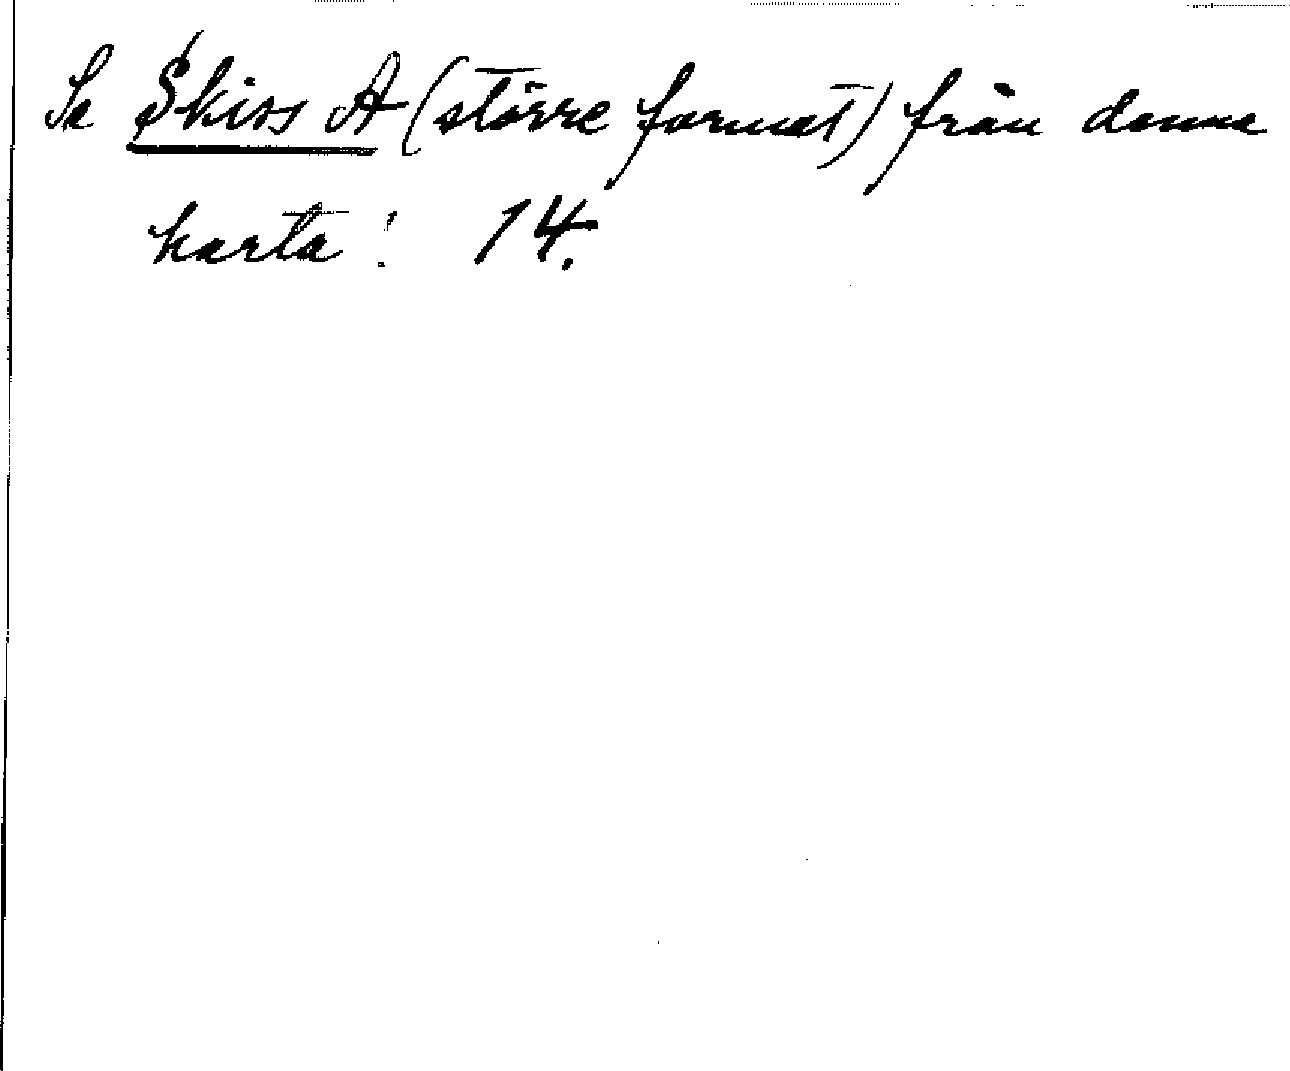 Se Skiss A (större format) från denna
karta! 14.